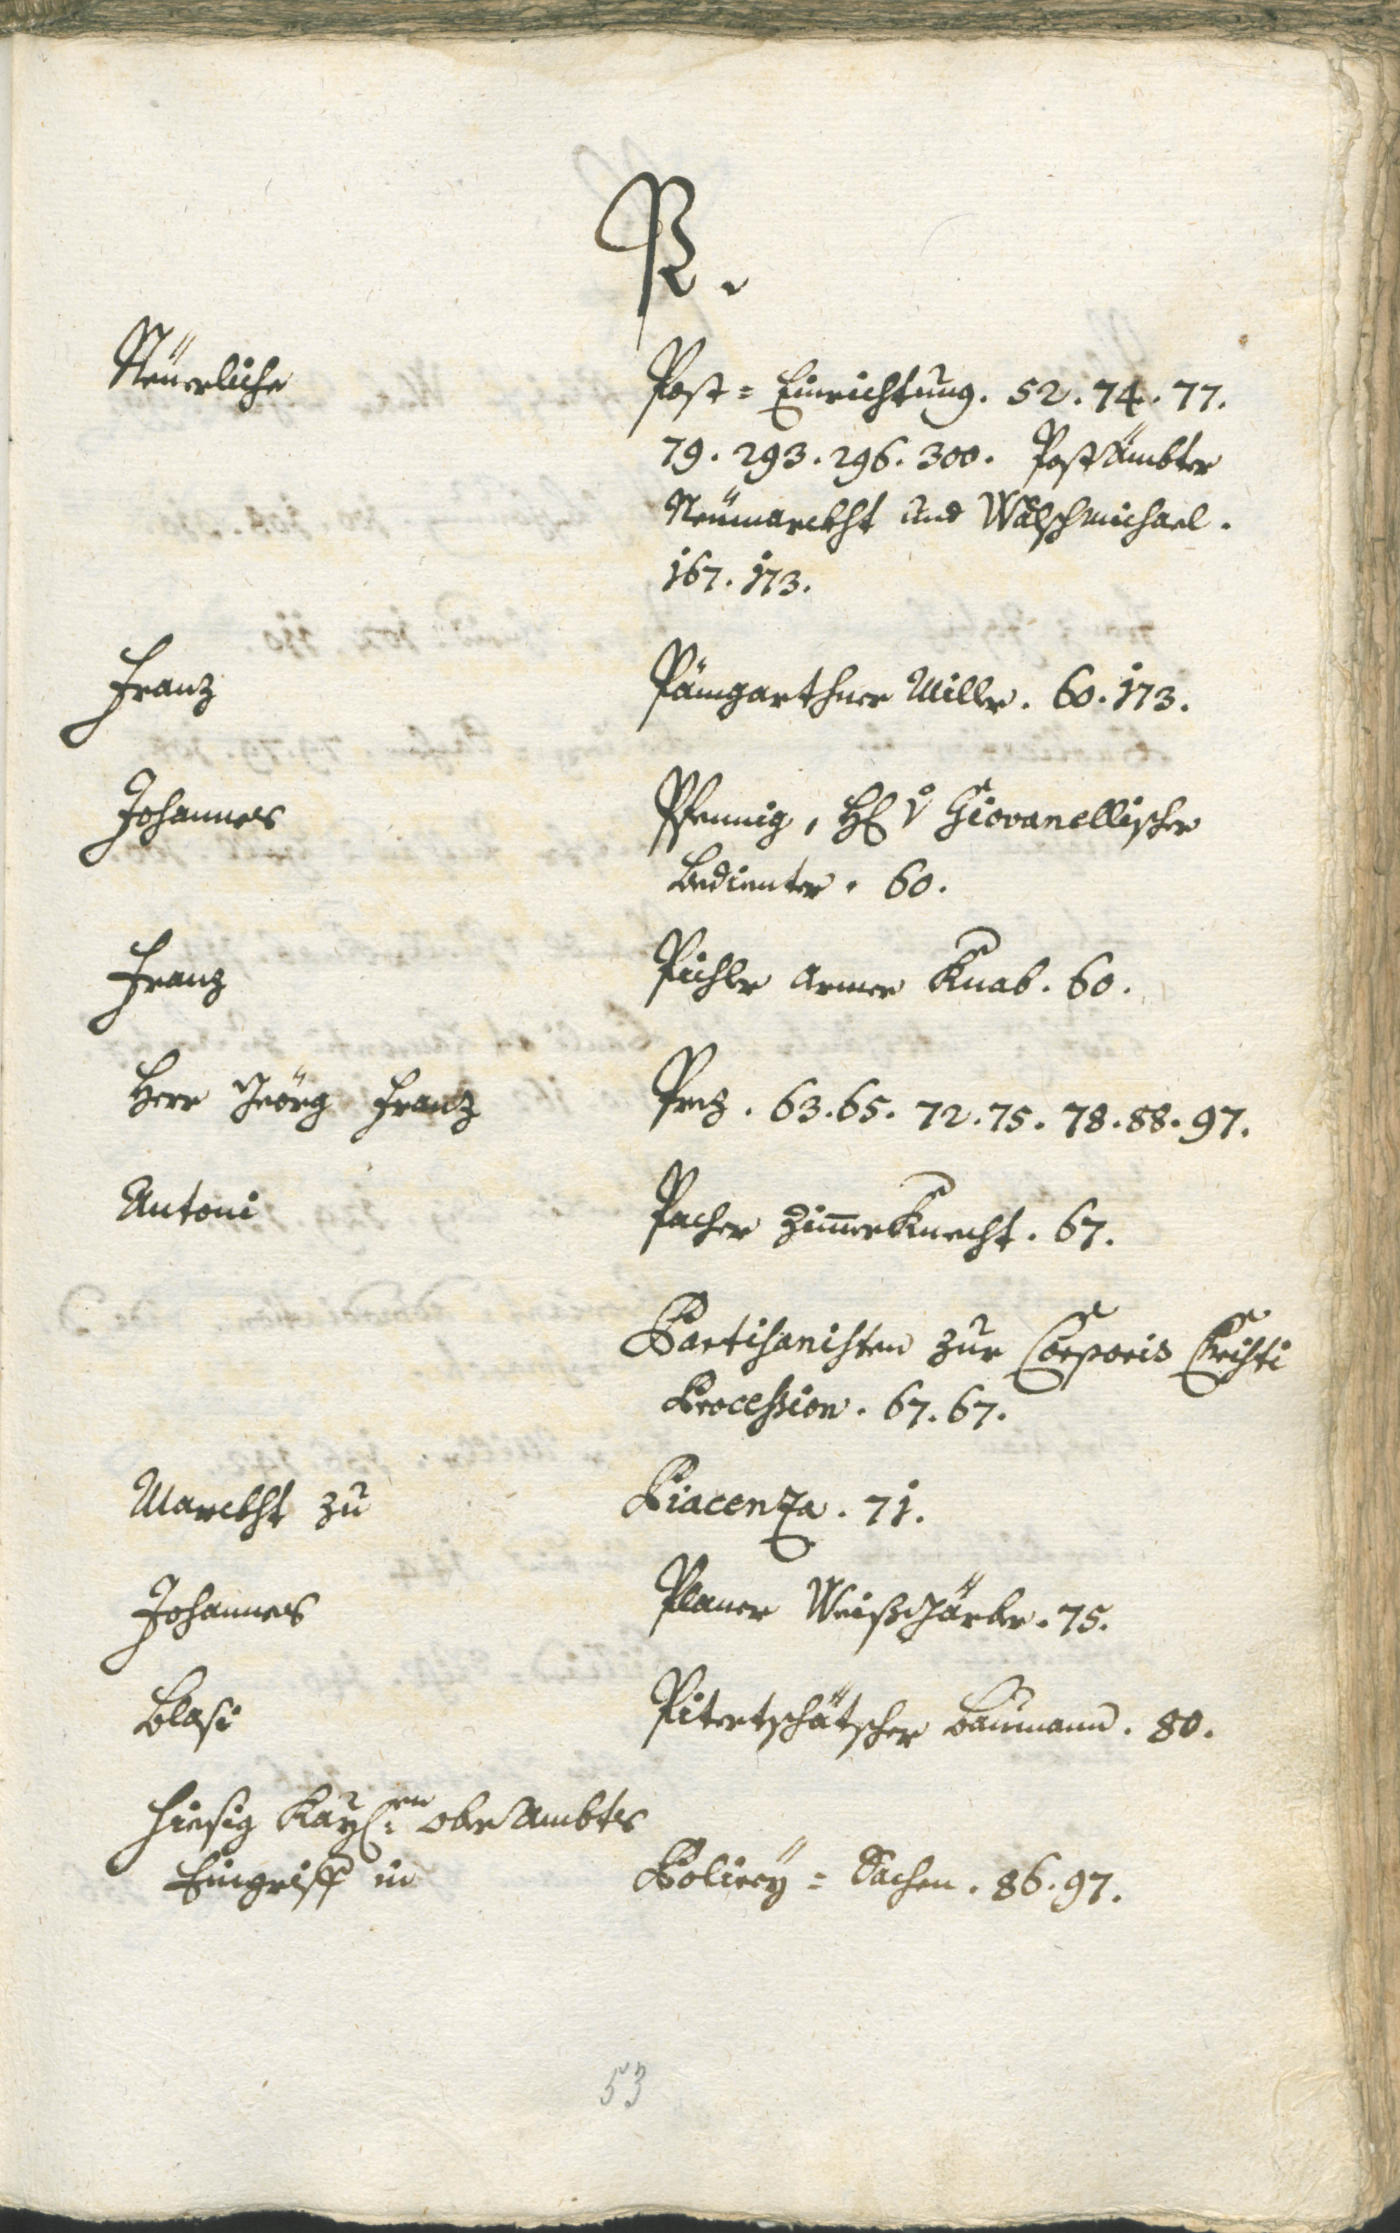 P.
Neüerliche Post=Einrichtung. 52. 74. 77.
79. 293. 296. 300. Postämbter
Neümarckht und Wälschmichael.
167. 173.
Franz Pämgarthner Miller. 60. 173.
Johannes Pfennig, H. v Giovanellischer
Bedienter. 60.
Franz Pichler armer Knab. 60.
Herr Jeörg Franz Prez. 63. 65. 72. 75. 78. 88. 97.
Antoni Pacher Zim̅erKnecht. 67.
Partisanisten zur Corporis Cristi
Procession. 67. 67.
Marckht zu Piacenza. 71.
Johannes Planer Weißgärber. 75.
Blasi Pitertschätscher Baumann. 80.
hiesig Kayl:en oberAmbts
Eingriff in Policey=Sachen. 86. 97.
53